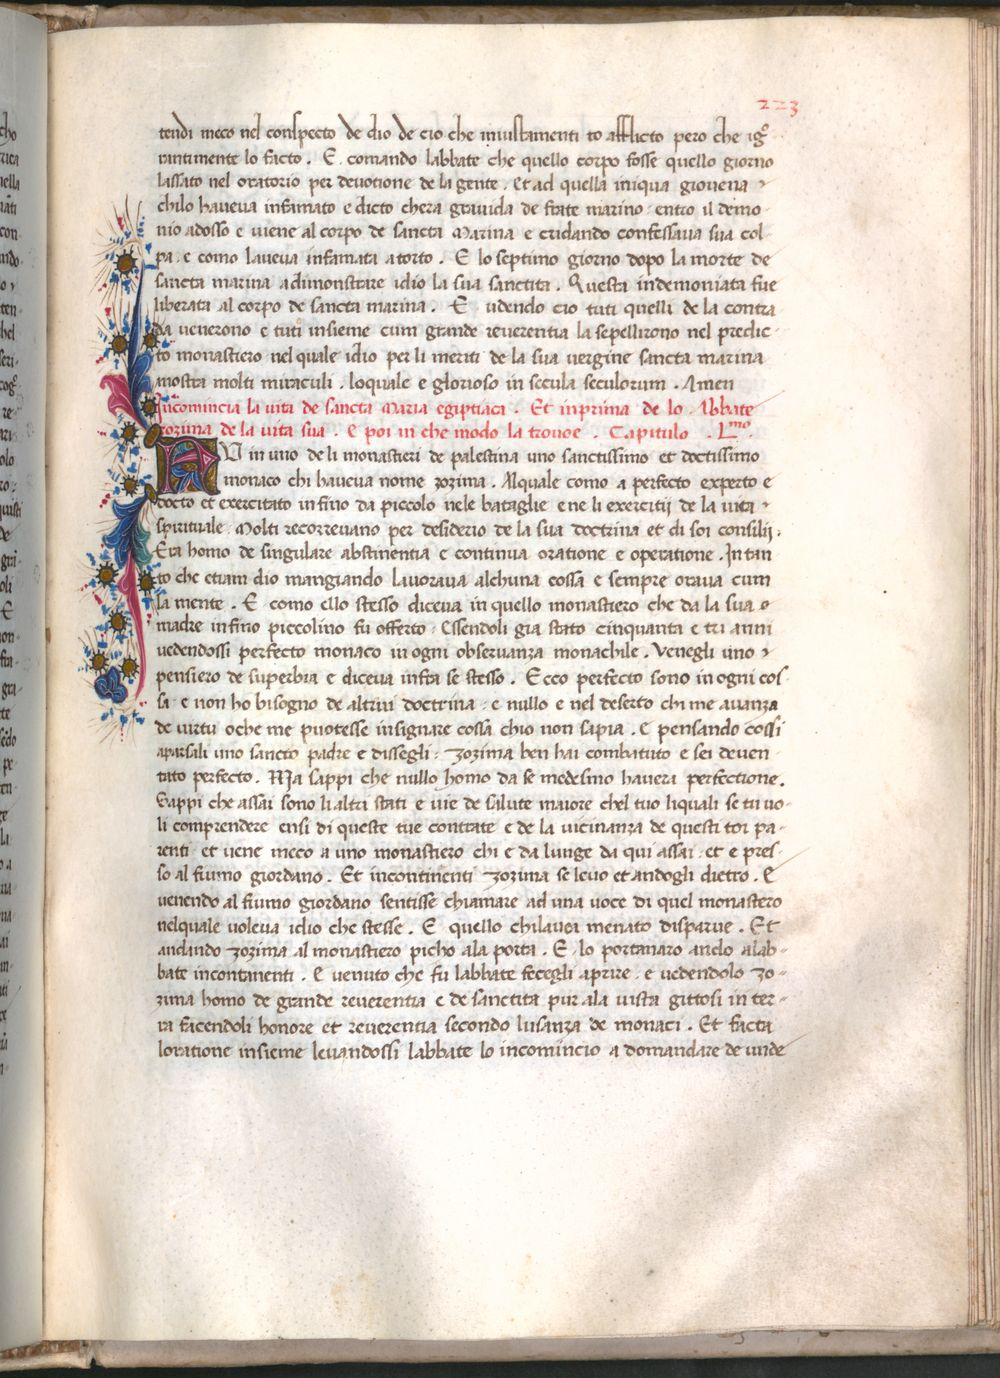 223
tendi meco nel conspecto de dio de cio che iniustamenti to afflicto pero che igº
rantimente lo facto . E comando labbate che quello corpo fosse quello giorno
lassato nel oratorio per deuotione de la gente . Et ad quella iniqua giouena
chilo haueua infamato e dicto chera grauida de frate marino entro il demo
nio adosso e uiene al corpo de sancta Marina e cridando confessaua sua col
pa . e como laueua infamata a torto . E lo septimo giorno dopo la morte de
sancta marina a dimonstrare idio la sua sanctita . Questa indemoniata fue
liberata al corpo de sancta marina . E udendo cio tuti quelli de la contra
da uenerono e tuti insieme cum grande reuerentia la sepellirono nel predic
to monastiero nel quale idio per li meriti de la sua uergine sancta marina
mostra molti miraculi . loquale e glorioso in secula seculorum . Amen
Incomincia la uita de sancta Maria egiptiaca . Et inprima de lo Abbate
zozima de la uita sua . E poi in che modo la trouoe . Capitulo . Lmo.
FU in uno de li monastieri de palestina uno sanctissimo et doctissimo
monaco chi haueua nome zozima . Alquale como a perfecto experto e
docto et exercitato infino da piccolo nele bataglie e ne li exercitij de la uita
spirituale Molti recorreuano per desiderio de la sua doctrina et di soi consilij .
Era homo de singulare abstinentia e continua oratione e operatione . In tan
to che etiam dio mangiando lauoraua alchuna cossa e sempre oraua cum
la mente . E como ello stesso diceua in quello monastiero che da la sua
madre infino piccolino fu offerto . Essendoli gia stato cinquanta e tri anni
uedendossi perfecto monaco in ogni obseruanza monachile . Venegli uno
pensiero de superbia e diceua infra se stesso . Ecco perfecto sono in ogni cos
sa e non ho bisogno de altrui doctrina e nullo e nel deserto chi me auanza
de uirtu o che me puotesse insignare cossa chio non sapia . E pensando cossi
aparsali uno sancto padre e dissegli . zozima ben hai combatuto e sei deuen
tato perfecto . Ma sappi che nullo homo da se medesimo hauera perfectione .
Sappi che assai sono li altri stati e uie de salute maiore chel tuo liquali se tu uo
li comprendere ensi di queste tue contrate e de la uicinanza de questi toi pa
renti et uene meco a uno monastiero chi e da lunge da qui assai et e pres
so al fiumo giordano . Et incontinenti zozima se leuo et andogli dietro . E
uenendo al fiumo giordano sentisse chiamare ad una uoce di quel monastero
nelquale uoleua idio che stesse . E quello chilauei menato disparue . Et
andando zozima al monastiero picho ala porta . E lo portanaro ando alab
bate incontanenti . E uenuto che fu labbate fecegli aprire e uedendolo zo
zima homo de grande reuerentia e de sanctita pur ala uista gittosi in ter
ra facendoli honore et reuerentia secondo lusanza de monaci . Et facta
loratione insieme leuandossi labbate lo incomincio a domandare de unde